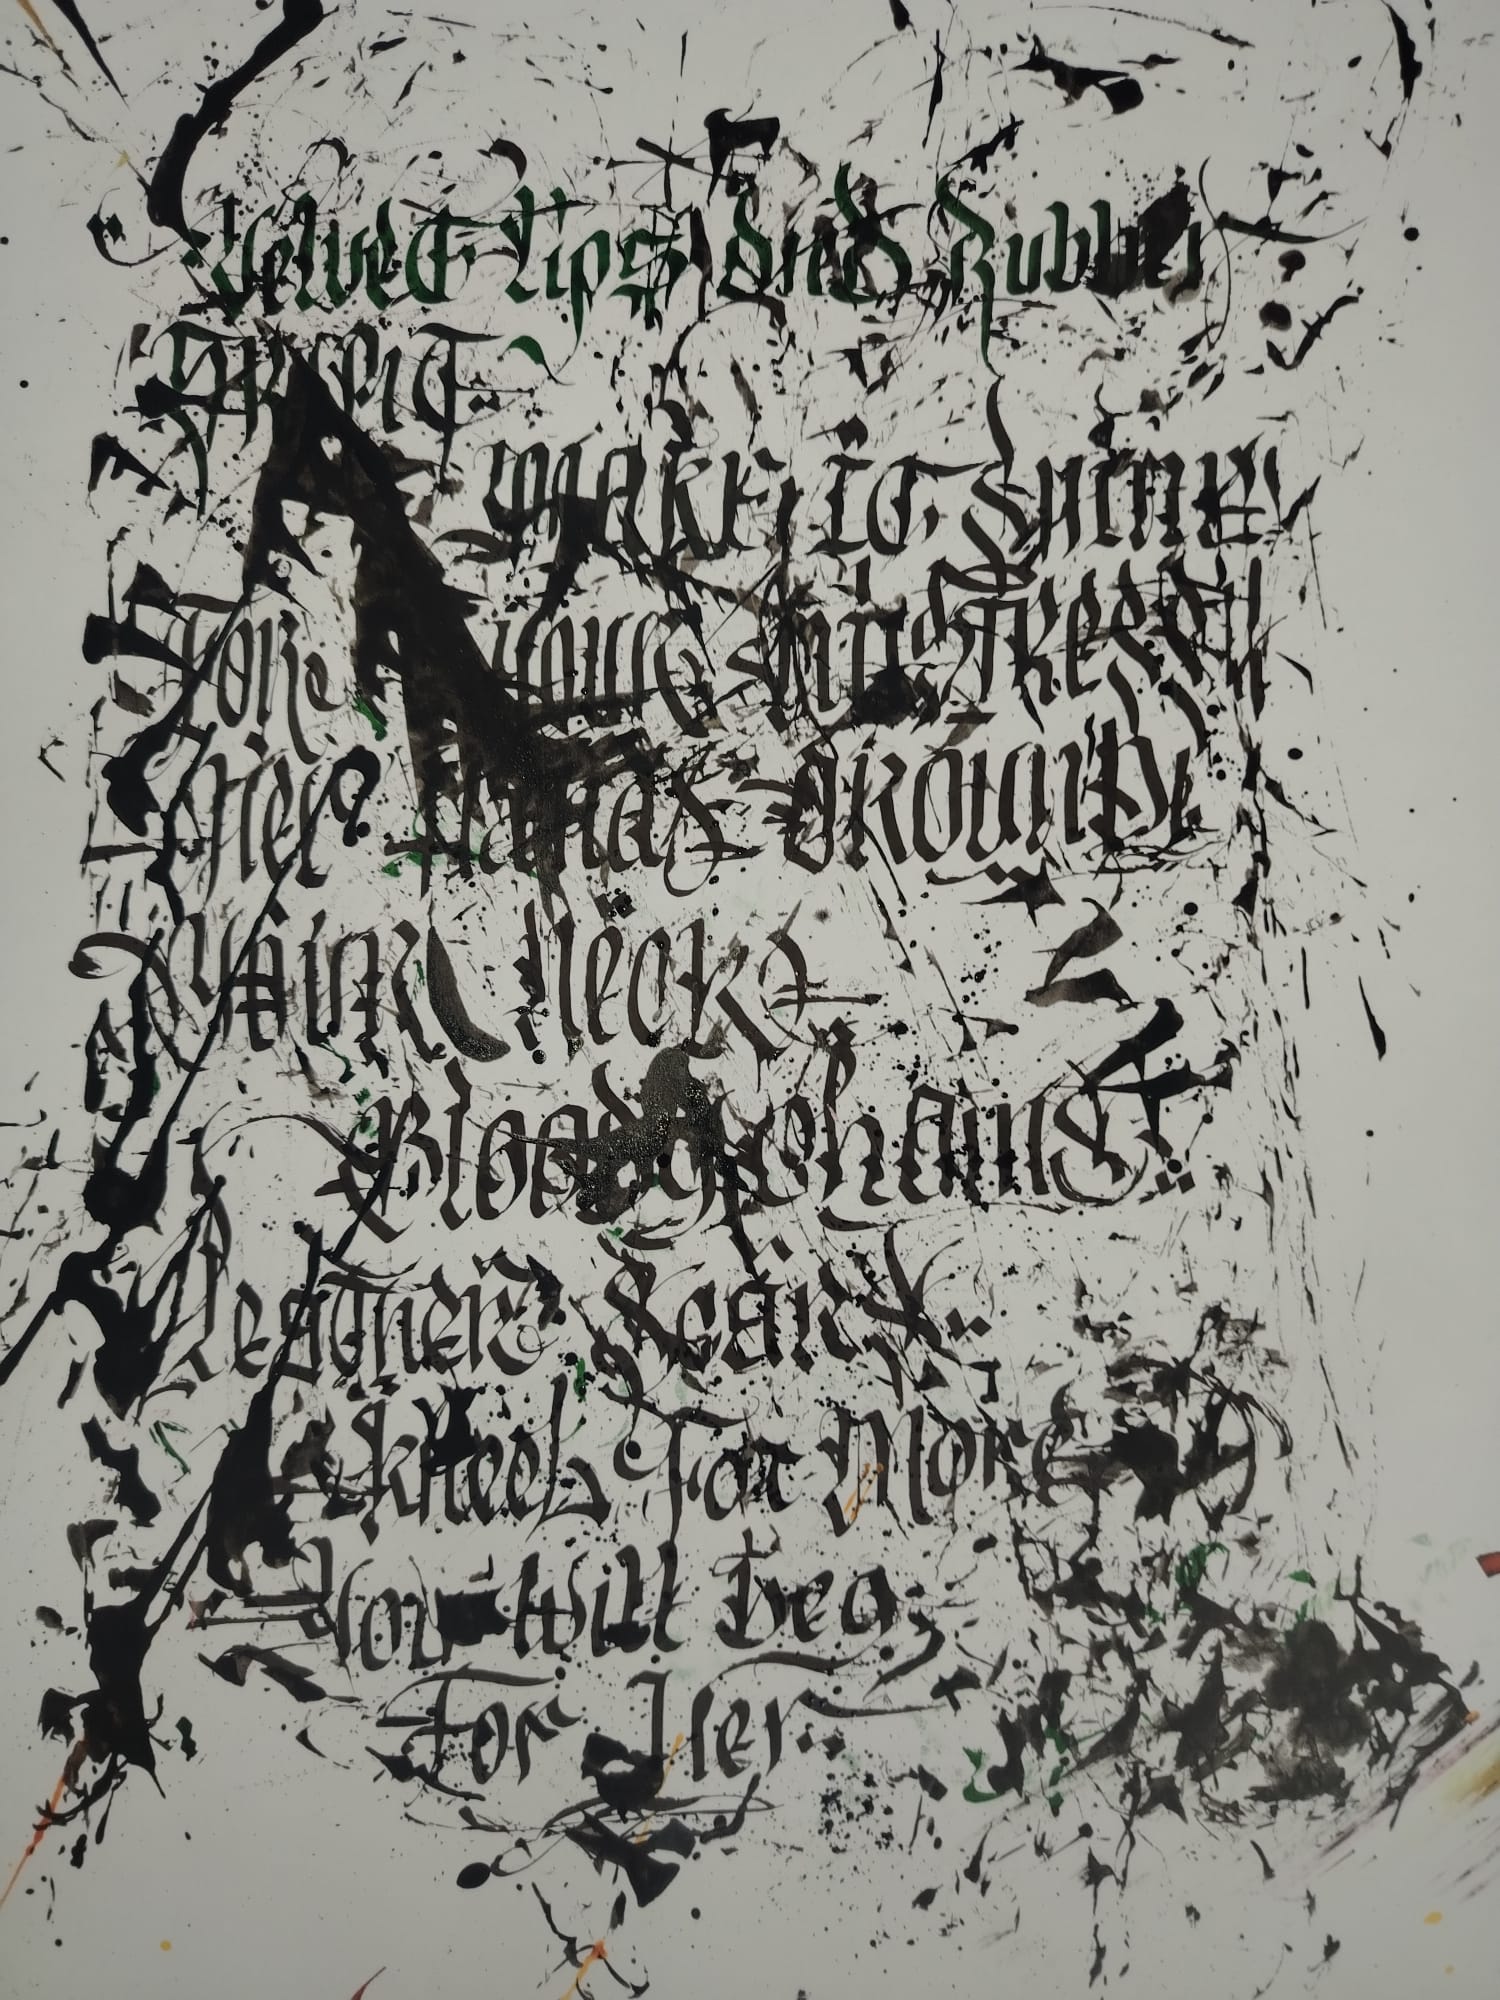 Velvet Lips and Rubber
make it shine
For your mistress
Her hands around
your neck
Blood
Leather Scars..
kneel For More
You will beg
For Her..